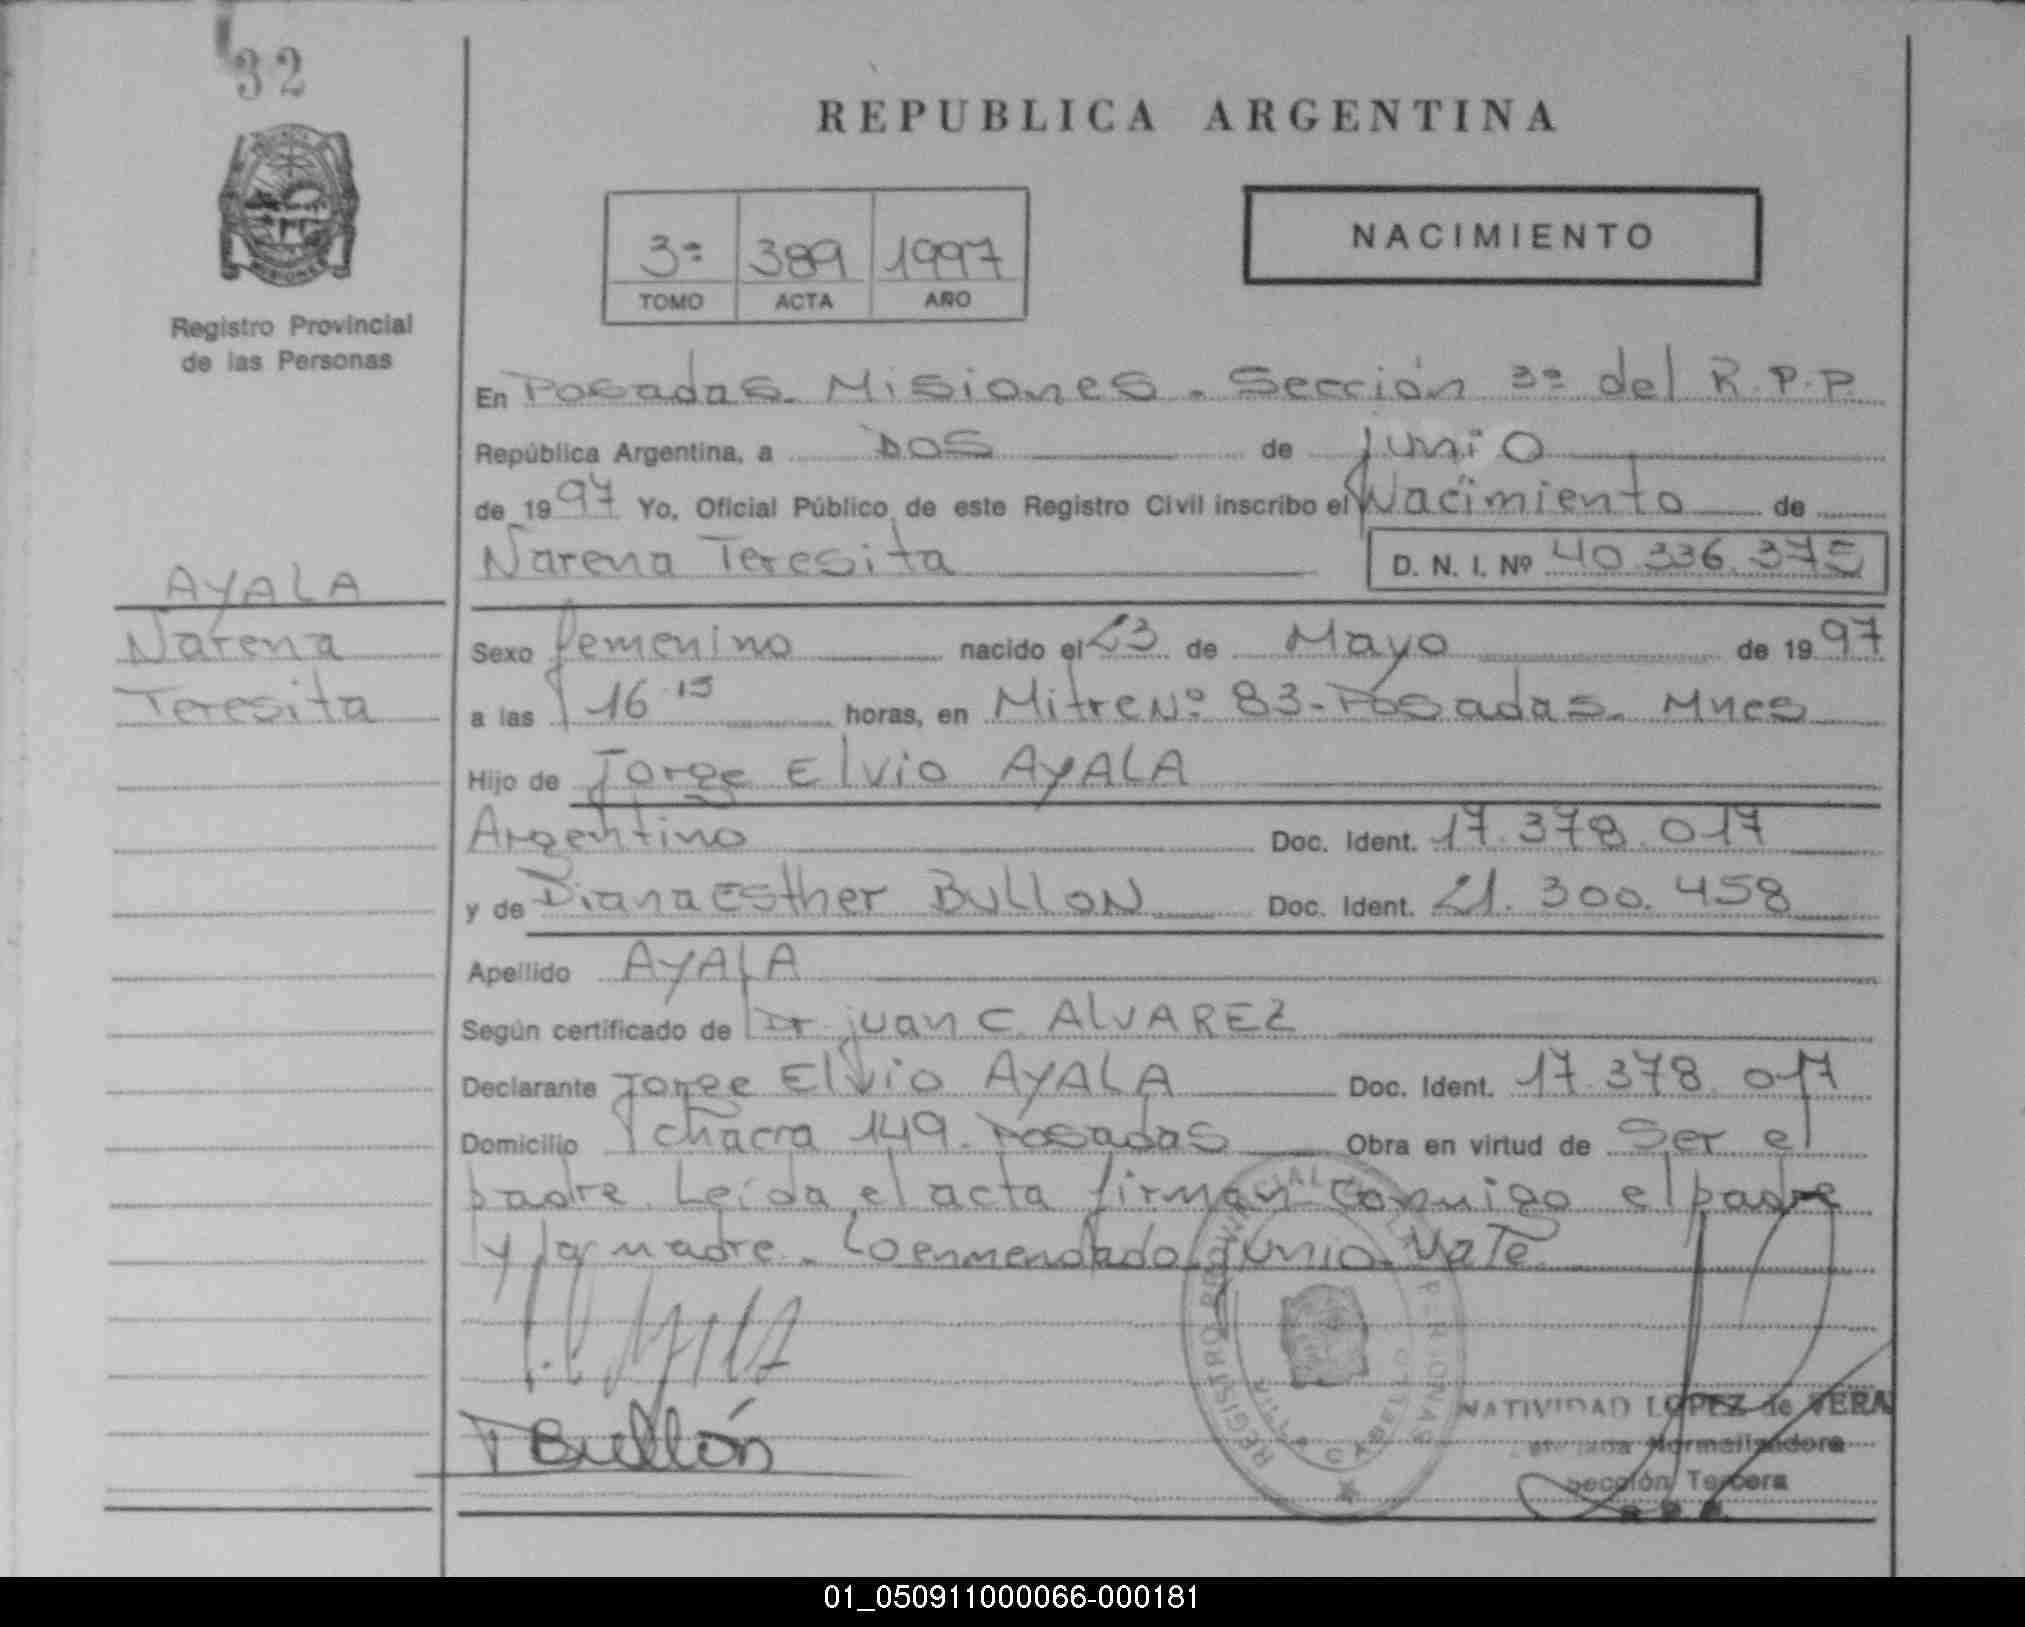 32
REPUBLICA ARGENTINA
NACIMIENTO
3ª 389 1997
TOMO ACTA AÑO
Registro Provincial
de las Personas
En Posadas. Misiones. Sección 3ª del R.P.P.
República Argentina, a DOS de junio
de 1997 Yo, Oficial Público de este Registro Civil inscribo el Nacimiento de
Narena Teresita D. N. I. Nº 40.336.375
AYALA
Narena
Teresita
Sexo femenino nacido el 23 de Mayo de 1997
a las 16 15 horas, en Mitre Nº 83-Posadas. Mnes
Hijo de Jorge Elvio AYALA
Argentino Doc. Ident. 17.378.017
y de Diana Esther BULLON Doc. Ident. 21.300.458
Apellido AYALA
Según certificado de Dr. Juan C. ALVAREZ
Declarante Jorge Elvio AYALA Doc. Ident. 17.378.017
Domicilio Chacra 149. Posadas Obra en virtud de Ser el
padre. Leída el acta firman conmigo el padre
y la madre. Lo enmendado junio. Vale.
Bullón
REGISTRO PROVINCIAL DE LAS PERSONAS
NATIVIDAD LOPEZ de VERA
Normalizadora
Sección Tercera
R.P.P.
01_050911000066-000181